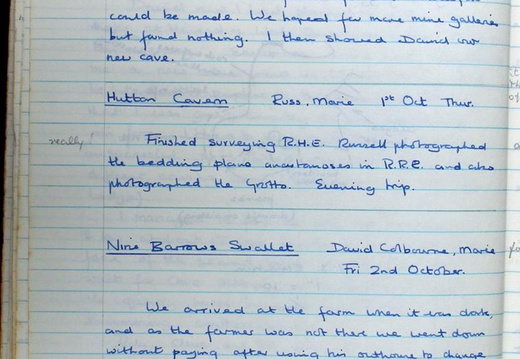 could be made. We hoped for more mine galleries
but found nothing. I then showed David our
new cave.
Hutton Cavern Russ, Marie 1st Oct Thur.
really!
Finished surveying R.H.E. Russell photographed
the bedding plane anastomoses in R.R.E. and also
photographed the Grotto. Evening trip.
Nine Barrows Swallet David Colbourne, Marie
Fri 2nd October.
We arrived at the farm when it was dark,
and as the farmer was not there we went down
without paying after using his outhouse to change